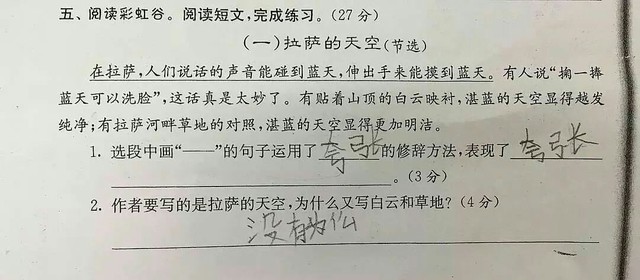 五、阅读彩虹谷。阅读短文,完成练习。(27分)
(一)拉萨的天空(节选)
在拉萨,人们说话的声音能碰到蓝天,伸出手来能摸到蓝天。有人说“掬一捧
蓝天可以洗脸”,这话真是太妙了。有贴着山顶的白云映衬,湛蓝的天空显得越发
纯净;有拉萨河畔草地的对照,湛蓝的天空显得更加明洁。
1. 选段中画“——”的句子运用了夸张的修辞方法,表现了夸张
。(3分)
2. 作者要写的是拉萨的天空,为什么又写白云和草地?(4分)
没有为什么